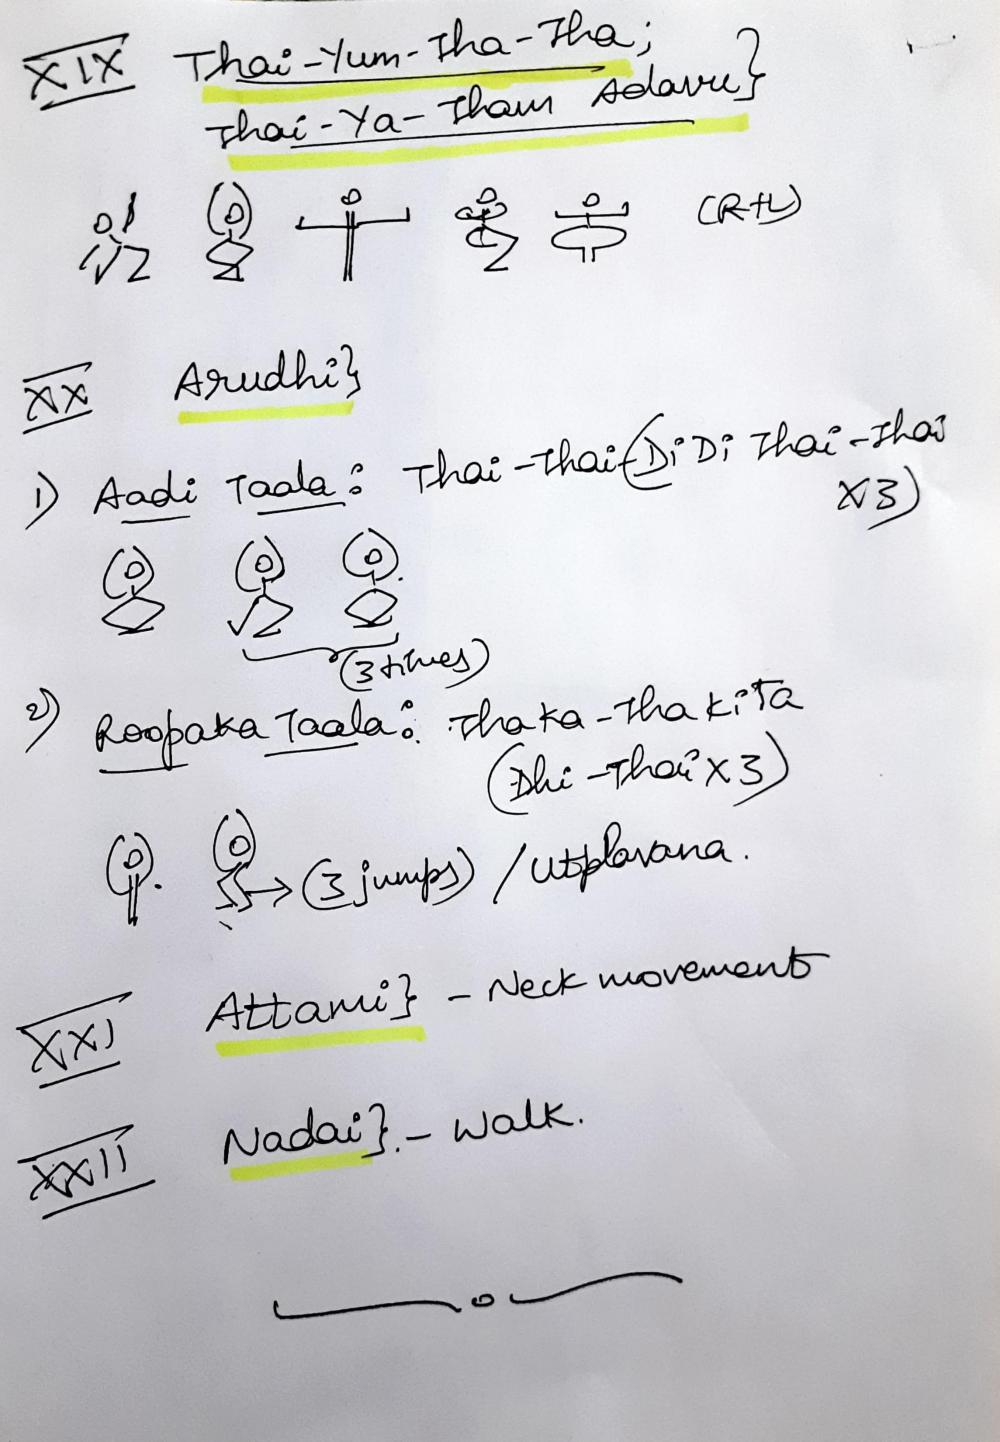 XIX Thai-Yum-Tha-Tha;
Thai-Ya-Tham Adavu}
(R+L)
XX Arudhi}
1) Aadi Taala: Thai-Thai-(Di Di Thai-Thai
X3)
(3 times)
2) Roopaka Taala: Thaka-Tha kiTa
(Dhi-Thai X3)
→(3 jumps) /Utplavana.
XXI Attami} - Neck movement
XXII Nadai}.- Walk.